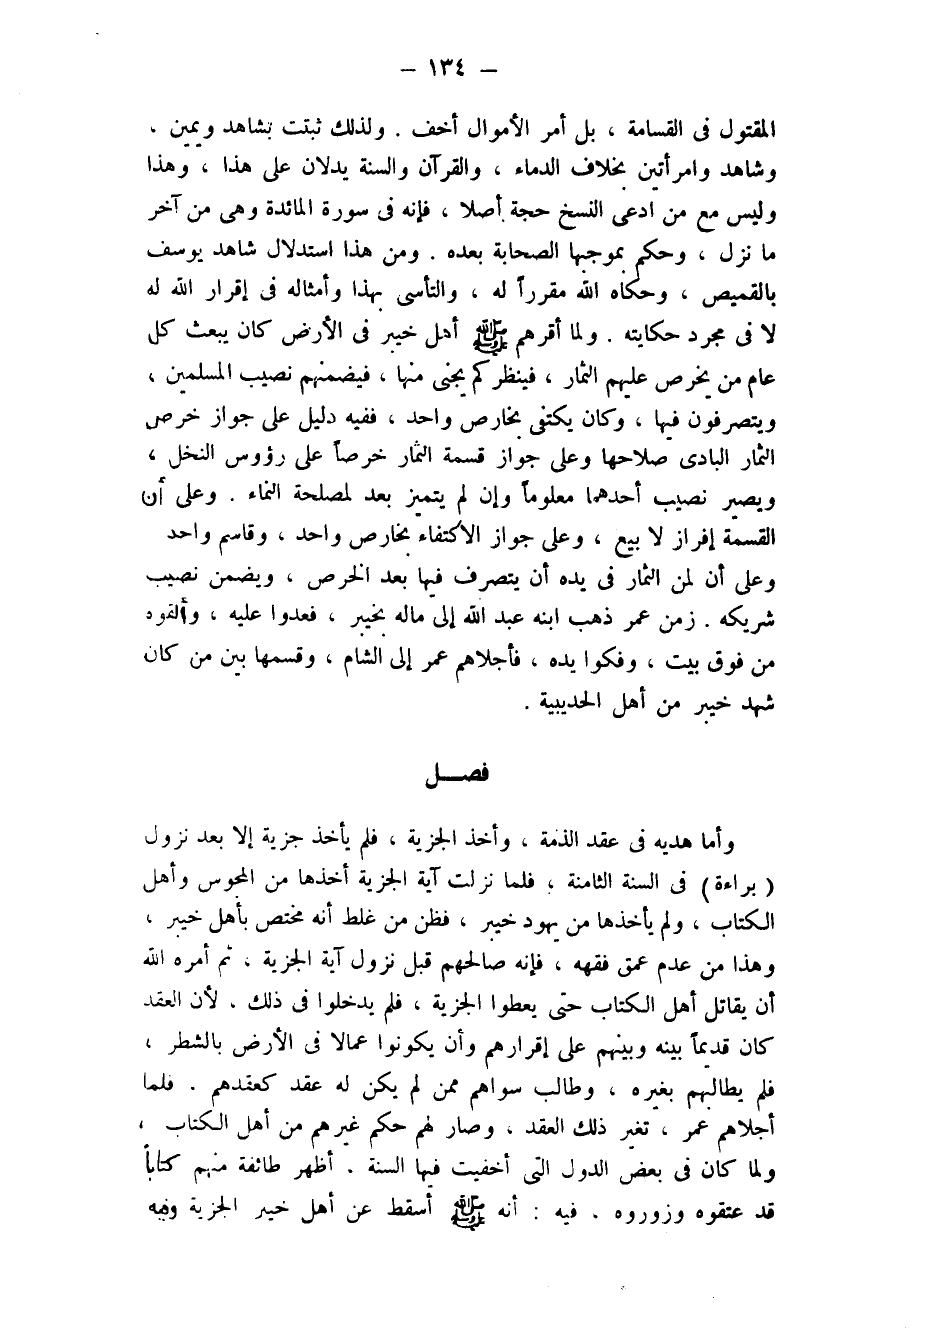 — ١٣٤ —
المقتول فى القسامة ، بل أمر الأموال أخف . ولذلك ثبتت بشاهد ويمين ،
وشاهد وامرأتين بخلاف الدماء ، والقرآن والسنة يدلان على هذا ، وهذا
وليس مع من ادعى النسخ حجة أصلا ، فإنه فى سورة المائدة وهى من آخر
ما نزل ، وحكم بموجبها الصحابة بعده . ومن هذا استدلال شاهد يوسف
بالقميص ، وحكاه الله مقرراً له ، والتأسى بهذا وأمثاله فى إقرار الله له
لا فى مجرد حكايته . ولما أقرهم ﷺ أهل خيبر فى الأرض كان يبعث كل
عام من يخرص عليهم الثمار ، فينظر كم يجنى منها ، فيضمنهم نصيب المسلمين ،
ويتصرفون فيها ، وكان يكتفى بخارص واحد ، ففيه دليل على جواز خرص
الثمار البادى صلاحها وعلى جواز قسمة الثمار خرصاً على رؤوس النخل ،
ويصير نصيب أحدهما معلوماً وإن لم يتميز بعد لمصلحة النماء . وعلى أن
القسمة إفراز لا بيع ، وعلى جواز الاكتفاء بخارص واحد ، وقاسم واحد
وعلى أن لمن الثمار فى يده أن يتصرف فيها بعد الخرص ، ويضمن نصيب
شريكه . زمن عمر ذهب ابنه عبد الله إلى ماله بخيبر ، فعدوا عليه ، وألقوه
من فوق بيت ، وفكوا يده ، فأجلاهم عمر إلى الشام ، وقسمها بين من كان
شهد خيبر من أهل الحديبية .
فصـــل
وأما هديه فى عقد الذمة ، وأخذ الجزية ، فلم يأخذ جزية إلا بعد نزول
( براءة ) فى السنة الثامنة ، فلما نزلت آية الجزية أخذها من المجوس وأهل
الكتاب ، ولم يأخذها من يهود خيبر ، فظن من غلط أنه مختص بأهل خيبر ،
وهذا من عدم عمق فقهه ، فإنه صالحهم قبل نزول آية الجزية ، ثم أمره الله
أن يقاتل أهل الكتاب حتى يعطوا الجزية ، فلم يدخلوا فى ذلك . لأن العقد
كان قديماً بينه وبينهم على إقرارهم وأن يكونوا عمالا فى الأرض بالشطر ،
فلم يطالبهم بغيره ، وطالب سواهم ممن لم يكن له عقد كعقدهم . فلما
أجلاهم عمر ، تغير ذلك العقد ، وصار لهم حكم غيرهم من أهل الكتاب ،
ولما كان فى بعض الدول التى أخفيت فيها السنة . أظهر طائفة منهم كتاباً
قد عتقوه وزوروه . فيه : أنه ﷺ أسقط عن أهل خيبر الجزية وفيه